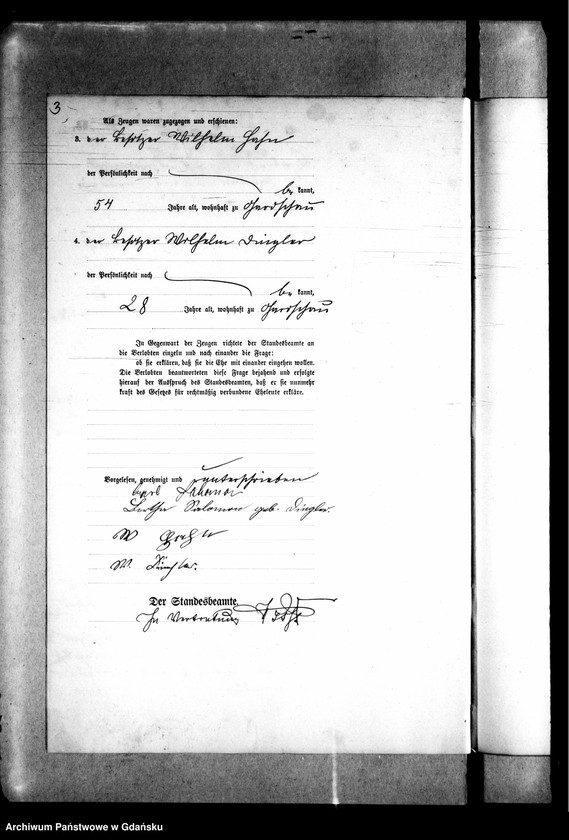 3
Als Zeugen waren zugezogen und erschienen:
3. der Besitzer Wilhelm Hahn
der Persönlichkeit nach
be kannt,
54 Jahre alt, wohnhaft zu Gardschau
4. der Besitzer Wilhelm Dingler
der Persönlichkeit nach
be kannt,
28 Jahre alt, wohnhaft zu Gardschau
In Gegenwart der Zeugen richtete der Standesbeamte an
die Verlobten einzeln und nach einander die Frage:
ob sie erklären, daß sie die Ehe mit einander eingehen wollen.
Die Verlobten beantworteten diese Frage bejahend und erfolgte
hierauf der Ausspruch des Standesbeamten, daß er sie nunmehr
kraft des Gesetzes für rechtmäßig verbundene Eheleute erkläre.
Vorgelesen, genehmigt und unterschrieben
Salomon
Bertha Salomon geb. Dingler.
W
W.
Der Standesbeamte.
In Vertretung
Archiwum Państwowe w Gdańsku